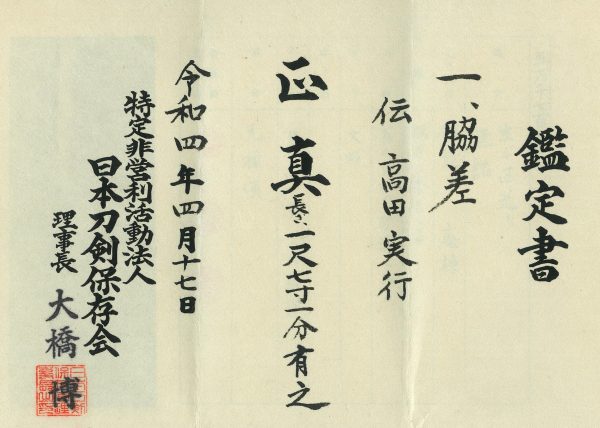 鑑定書
一、脇差
伝 高田実行
正真
長さ、一尺七寸一分有之
令和四年四月十七日
特定非営利活動法人
日本刀剣保存会
理事長 大橋 博